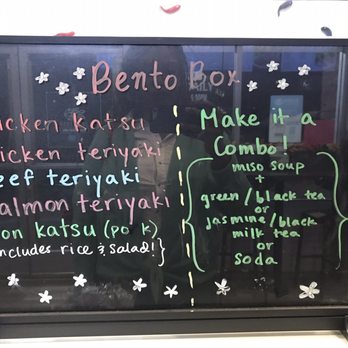 Bento Box
icken katsu
icken teriyaki
eef teriyaki
almon teriyaki
on katsu (po k)
includes rice & salad!}
Make it a
Combo!
miso soup
+
green/black tea
or
jasmine/black
milk tea
or
soda